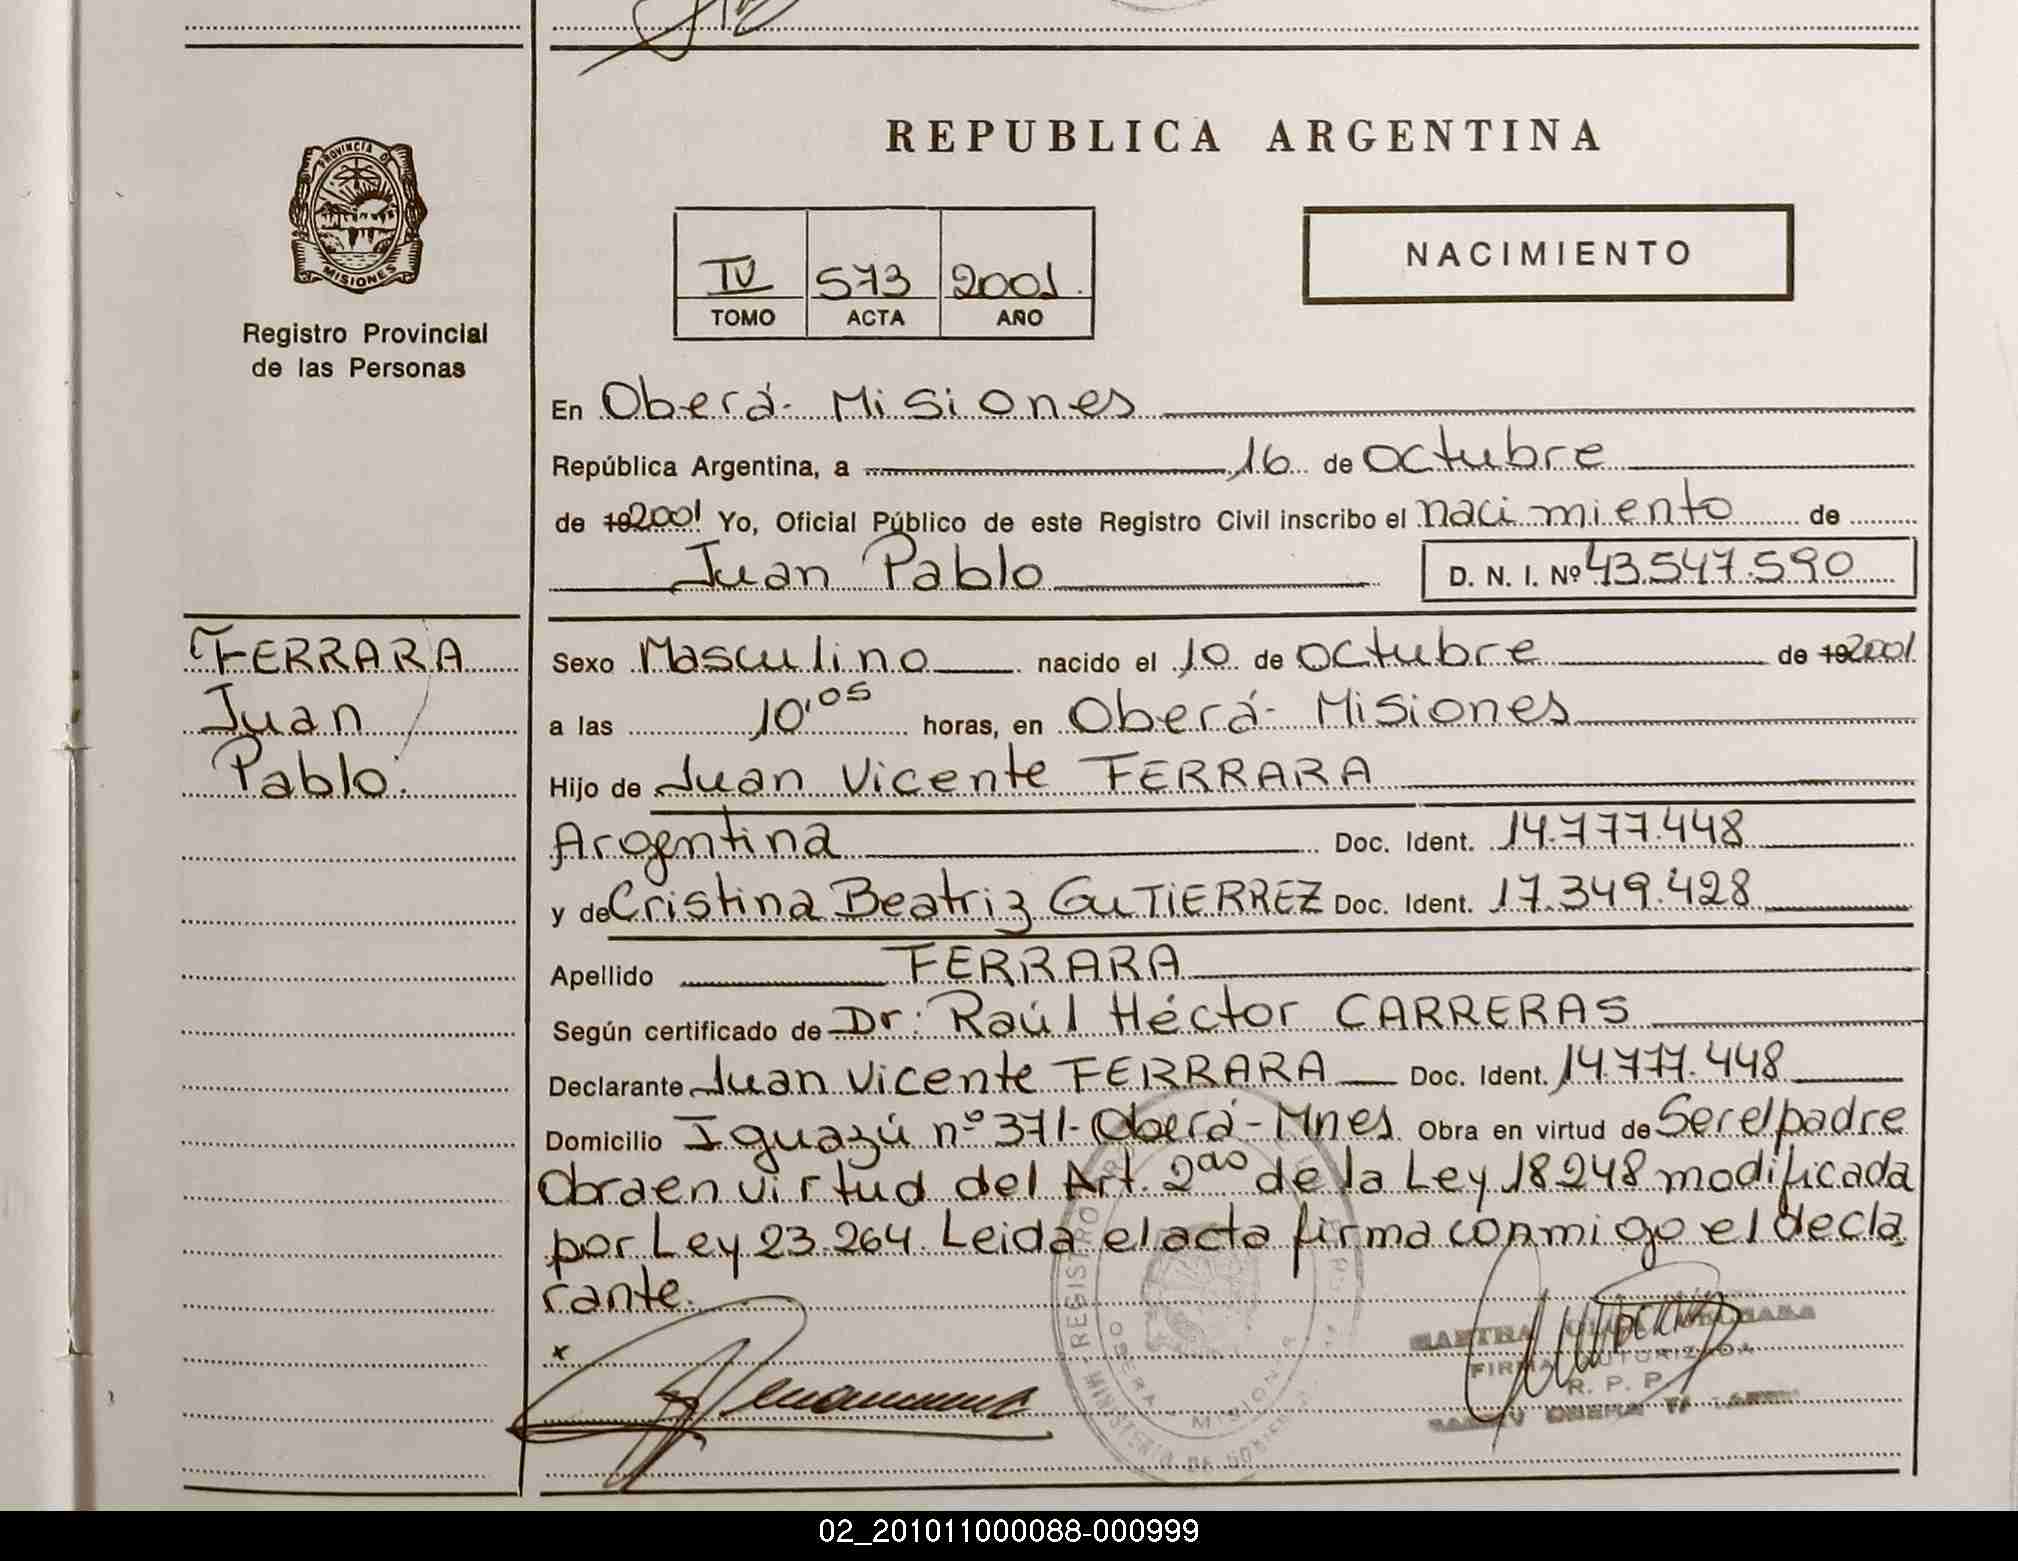 REPUBLICA ARGENTINA
PROVINCIA DE
MISIONES
Registro Provincial
de las Personas
IV 573 2001.
TOMO ACTA AÑO
NACIMIENTO
En Oberá- Misiones
República Argentina, a 16 de octubre
de 192001 Yo, Oficial Público de este Registro Civil inscribo el nacimiento de
Juan Pablo D. N. I. Nº 43.547.590
FERRARA
Juan
Pablo.
Sexo Masculino nacido el 10 de octubre de 192001
a las 10,05 horas, en Oberá- Misiones
Hijo de Juan Vicente FERRARA
Argentina Doc. Ident. 14.777.448
y de Cristina Beatriz GUTIERREZ Doc. Ident. 17.349.428
Apellido FERRARA
Según certificado de Dr. Raúl Héctor CARRERAS
Declarante Juan Vicente FERRARA Doc. Ident. 14.777.448
Domicilio Iguazú nº 371- Oberá- Mnes Obra en virtud de Ser el padre
Obra en virtud del Art. 2do de la Ley 18248 modificada
por Ley 23.264. Leida el acta firma conmigo el decla
rante.
x
REGISTRO
OBERA - MISIONES
FIRMA AUTORIZADA
R. P. P.
02_201011000088-000999